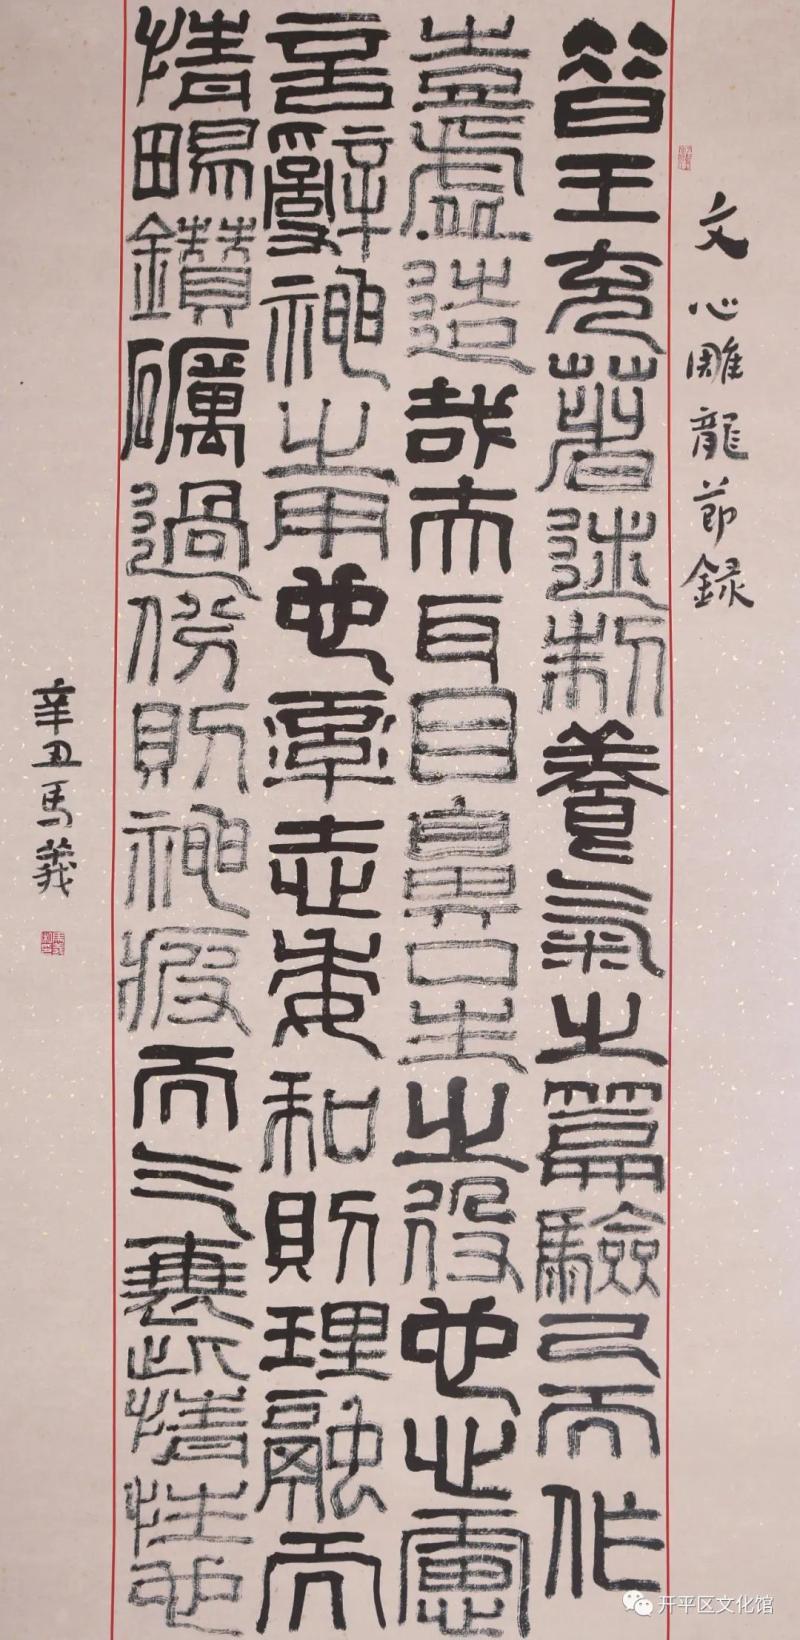 文心雕龍節録
昔王充著述制養氣之篇驗己而作
豈虛造哉夫耳目鼻口生之役也心慮
言辭神之用也率志委和則理融而
情暢鑽礪過份則神疲而气衰此情性也
辛丑馬義
开平区文化馆